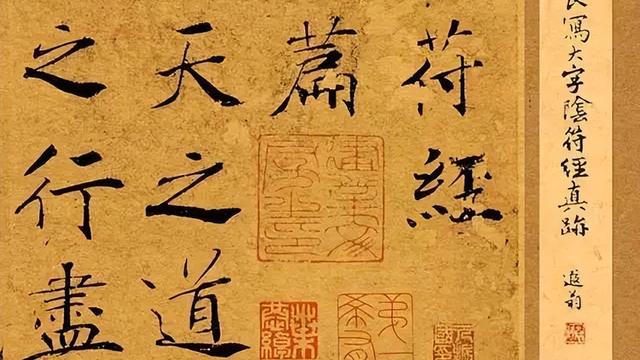 寫大字陰符經真跡
遐翁
符經
篇
天之道
之行盡